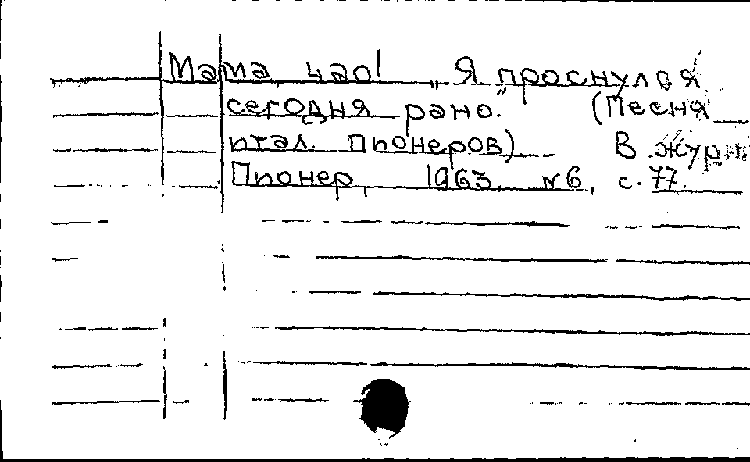 Мама, чао! „Я проснулся
сегодня рано." (Песня
итал. пионеров) В журн.
Пионер, 1963, №6, с. 77.